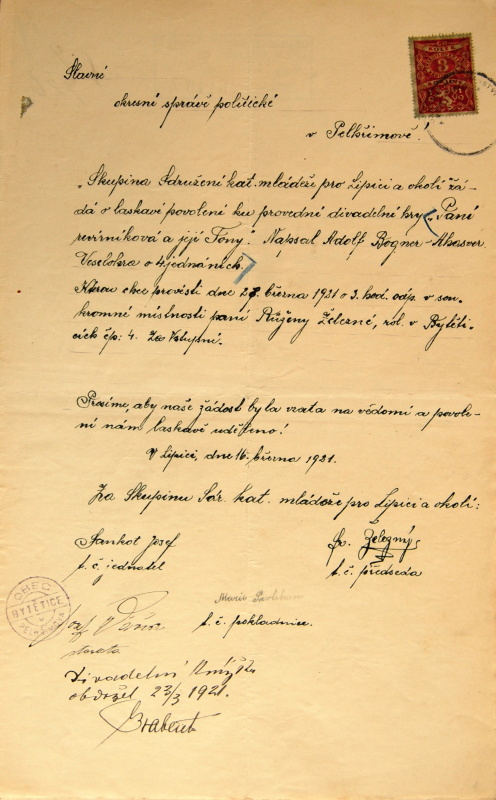 Slavné
okresní správě politické
v Pelhřimově!
„Skupina Sdružení kat. mládeže pro Lipici a okolí žá-
dá o laskavé povolení ku provední divadelní hry „Paní
revírníková a její Tóny". Napsal Adolf Bogner-Ahasver.
Veselohra o 4 jednáních.
Kterou chce provésti dne 28 března 1921 o 3. hod. odp. v sou-
kromné místnosti paní Růženy Železné, rol. v Bytěti-
cích čp: 4. Za Vstupní.
Prosíme, aby naše žádost byla vzata na vědomí a povole-
ní nám laskavě uděleno!
V Lipici, dne 16. března 1921.
Za Skupinu Sdr. kat. mládeže pro Lipici a okolí:
Sankot Josef
Fr. Železný
t. č. jednatel
t. č. předseda
OBEC
BYTĚTICE
Marie
t. č. pokladnice.
starosta
Divadelní
obdržel 23/3 1921.